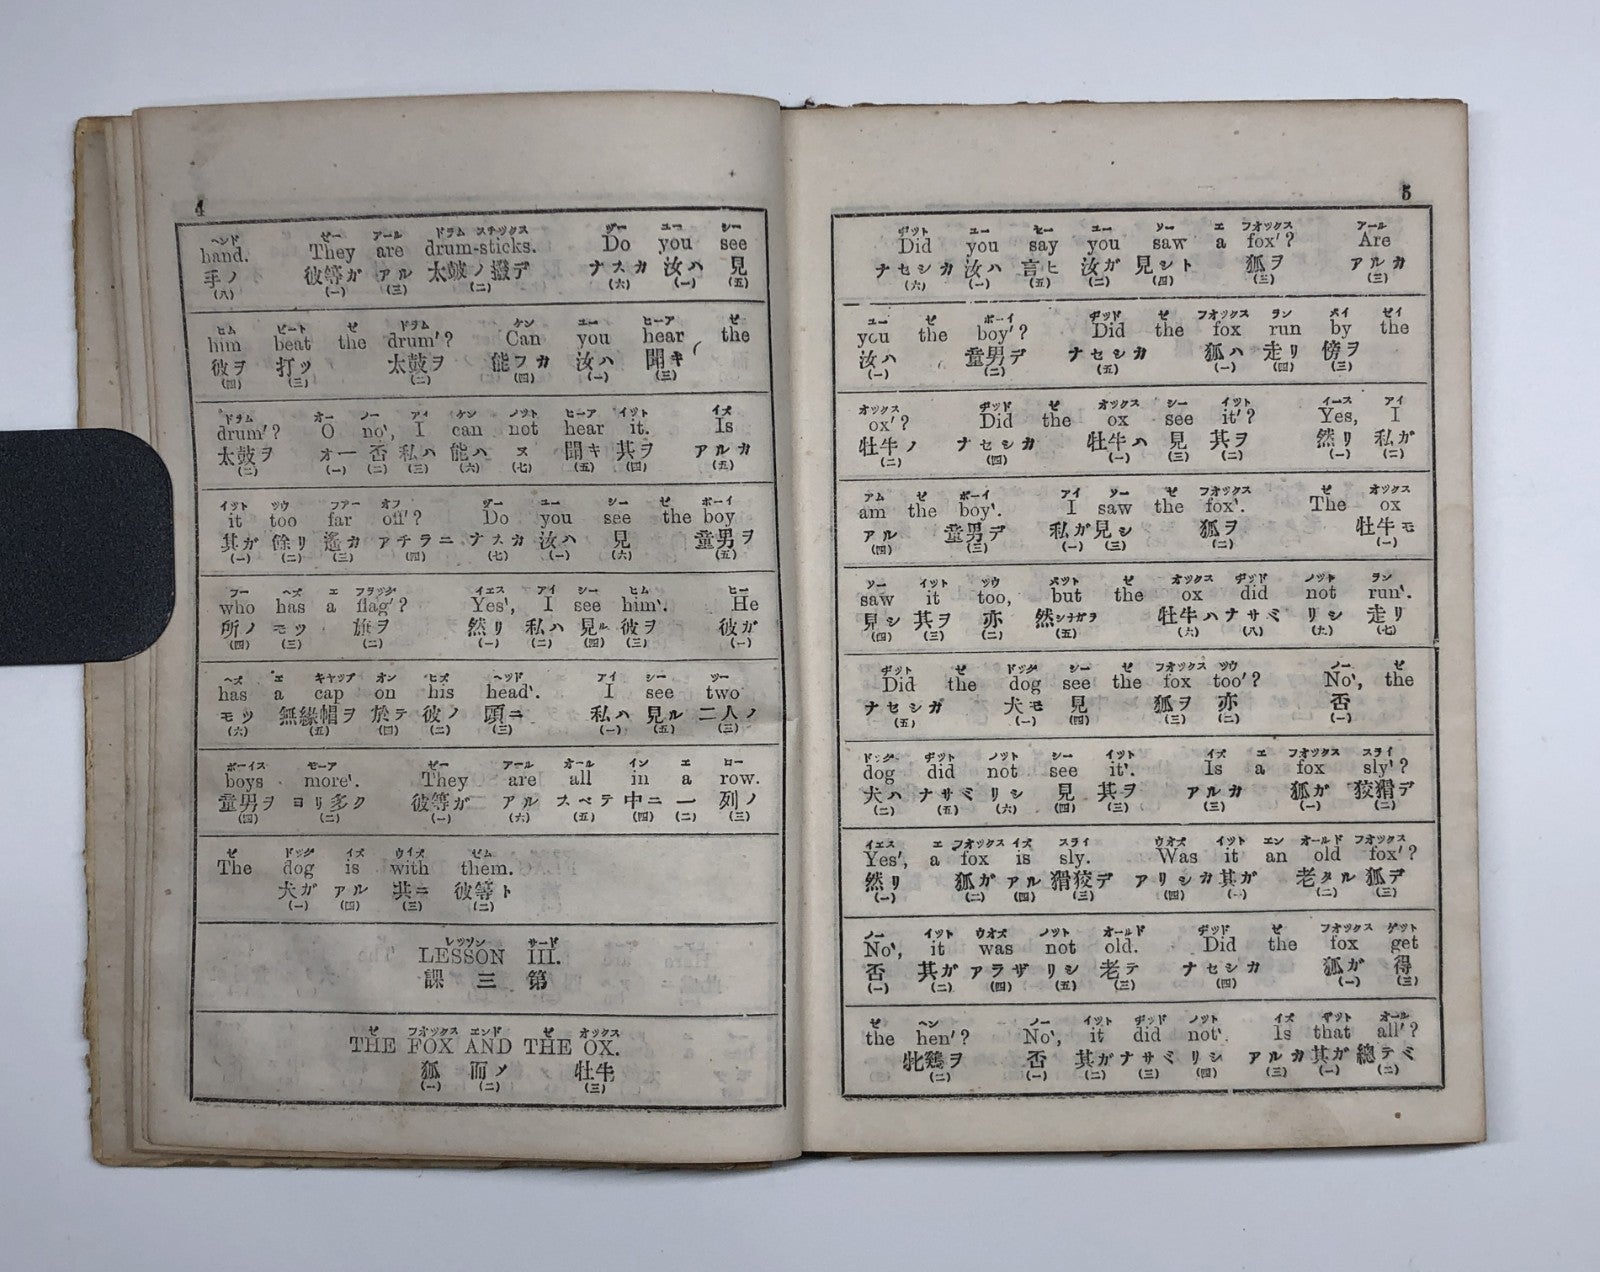 4
ヘンド ゼー アール ドラム スチックス ヅー ユー シー
hand. They are drum-sticks. Do you see
手ノ 彼等ガ アル 太皷ノ撥デ ナスカ 汝ハ 見
(八) (一) (三) (二) (六) (一) (五)
ヒム ビート ゼ ドラム ケン ユー ヒーア ゼ
him beat the drum'? Can you hear the
彼ヲ 打ツ 太鼓ヲ 能フカ 汝ハ 聞キ
(四) (三) (二) (四) (一) (三)
ドラム オー ノー アイ ケン ノツト ヒーア イツト イズ
drum'? O no', I can not hear it. Is
太鼓ヲ オー 否 私ハ 能ハ ヌ 聞キ 其ヲ アルカ
(二) (一) (二) (三) (六) (七) (五) (四) (五)
イツト ツウ フアー オフ ヅー ユー シー ゼ ボーイ
it too far off'? Do you see the boy
其ガ 餘リ 遙カ アチラニ ナスカ 汝ハ 見 童男ヲ
(一) (二) (三) (四) (七) (一) (六) (五)
フー ヘズ エ フラッグ イエス アイ シー ヒム ヒー
who has a flag'? Yes', I see him'. He
所ノ モツ 旗ヲ 然リ 私ハ 見ル 彼ヲ 彼ガ
(四) (三) (二) (一) (二) (四) (三) (一)
ヘズ エ キャップ オン ヒズ ヘッド アイ シー ツー
has a cap on his head'. I see two
モツ 無緣帽ヲ 於テ 彼ノ 頭ニ 私ハ 見ル 二人ノ
(六) (五) (四) (二) (三) (一) (五) (三)
ボーイス モーア ゼー アール オール イン エ ロー
boys more'. They are all in a row.
童男ヲ ヨリ多ク 彼等ガ アル スベテ 中ニ 一 列ノ
(四) (二) (一) (六) (五) (四) (二) (三)
ゼ ドッグ イズ ウイズ ゼム
The dog is with them.
犬ガ アル 共ニ 彼等ト
(一) (四) (三) (二)
レッソン サード
LESSON III.
課 三 第
ゼ フオックス エンド ゼ オックス
THE FOX AND THE OX.
狐 而ノ 牡牛
(一) (二) (三)
5
ヂット ユー セー ユー ソー エ フオックス アール
Did you say you saw a fox'? Are
ナセシカ 汝ハ 言ヒ 汝ガ 見シト 狐ヲ アルカ
(六) (一) (五) (二) (四) (三) (三)
ユー ゼ ボーイ ヂッド ゼ フオックス ラン メイ ゼイ
you the boy'? Did the fox run by the
汝ハ 童男デ ナセシカ 狐ハ 走リ 傍ヲ
(一) (二) (五) (一) (四) (三)
オックス ヂッド ゼ オックス シー イット イース アイ
ox'? Did the ox see it'? Yes, I
牡牛ノ ナセシカ 牡牛ハ 見 其ヲ 然リ 私ガ
(二) (四) (一) (三) (二) (一) (二)
アム ゼ ボーイ アイ ソー ゼ フオックス ゼ オックス
am the boy'. I saw the fox'. The ox
アル 童男デ 私ガ 見シ 狐ヲ 牡牛モ
(四) (三) (一) (三) (二) (一)
ソー イット ツウ メツト ゼ オックス ヂッド ノット ラン
saw it too, but the ox did not run'.
見シ 其ヲ 亦 然シナガラ 牡牛ハ ナサミ リシ 走リ
(四) (三) (二) (五) (六) (八) (九) (七)
ヂット ゼ ドッグ シー ゼ フオックス ツウ ノー ゼ
Did the dog see the fox too'? No', the
ナセシカ 犬モ 見 狐ヲ 亦 否
(五) (一) (四) (三) (二) (一)
ドッグ ヂット ノット シー イット イズ エ フオックス スライ
dog did not see it'. Is a fox sly'?
犬ハ ナサミ リシ 見 其ヲ アルカ 狐ガ 狡猾デ
(二) (五) (六) (四) (三) (三) (一) (二)
イエス エ フオックス イズ スライ ウオズ イット エン オールド フオックス
Yes', a fox is sly. Was it an old fox'?
然リ 狐ガ アル 猾狡デ アリシカ 其ガ 老タル 狐デ
(一) (二) (四) (三) (四) (一) (二) (三)
ノー イット ウオズ ノット オールド ヂット ゼ フオックス ゲット
No', it was not old. Did the fox get
否 其ガ アラザ リシ 老テ ナセシカ 狐ガ 得
(一) (二) (四) (五) (三) (四) (一) (三)
ゼ ヘン ノー イット ヂッド ノット イズ ザット オール
the hen'? No', it did not'. Is that all'?
牝鷄ヲ 否 其ガ ナサミ リシ アルカ 其ガ 總テミ
(二) (一) (二) (三) (四) (三) (一) (二)